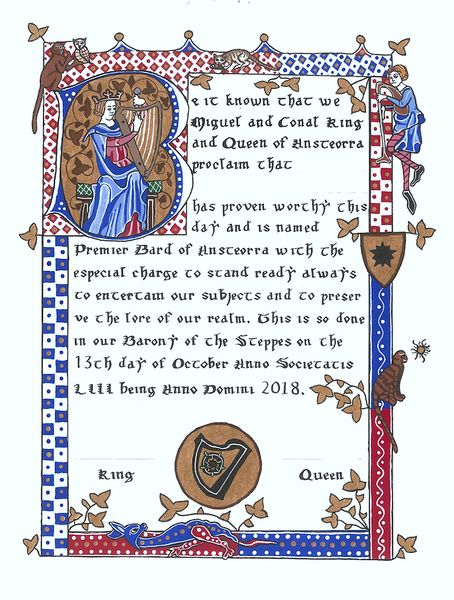 Be it known that we
Miguel and Conal King
and Queen of Ansteorra
proclaim that
has proven worthy this
day and is named
Premier Bard of Ansteorra with the
especial charge to stand ready always
to entertain our subjects and to preser
ve the lore of our realm. This is so done
in our Barony of the Steppes on the
13th day of October Anno Societatis
LIII being Anno Domini 2018.
King Queen